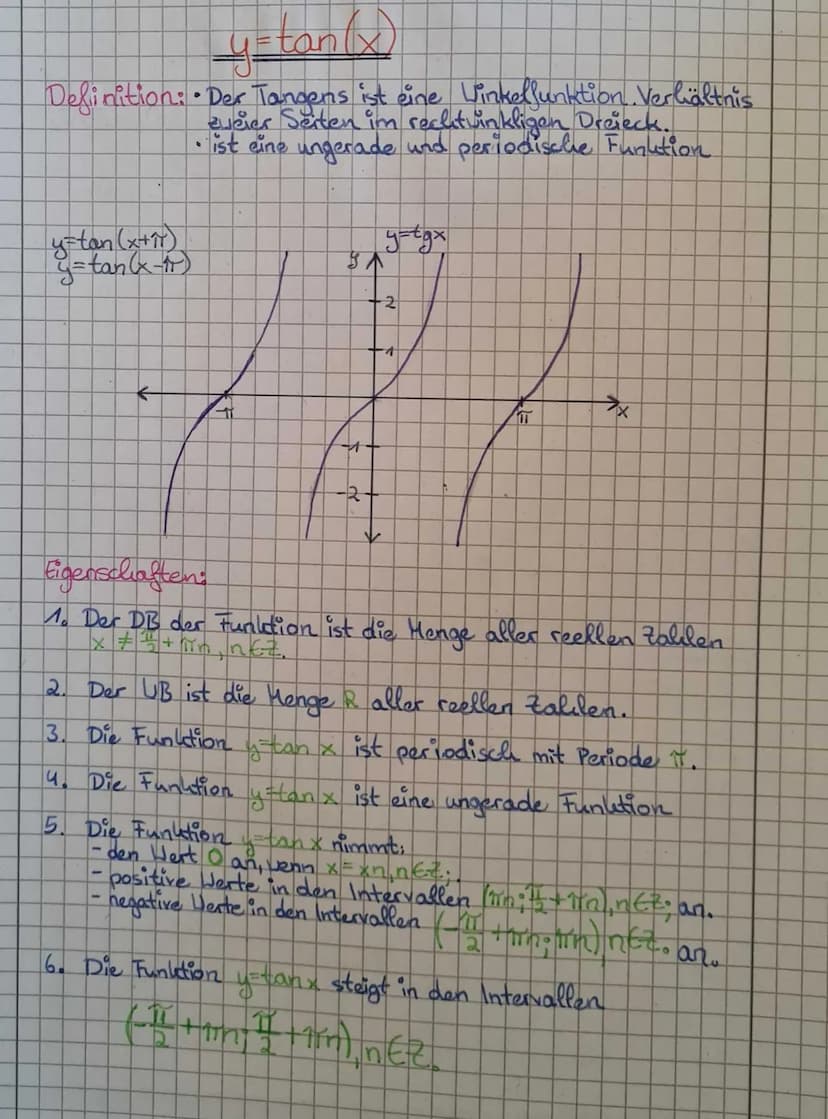 y=tan(x)
Definition: • Der Tangens ist eine Winkelfunktion. Verhältnis
zweier Seiten im rechtwinkligen Dreieck.
• ist eine ungerade und periodische Funktion
y=tan(x+π)
y=tan(x-π)
y=tgx
y
2
1
-π
π
x
-1
-2
Eigenschaften:
1. Der DB der Funktion ist die Menge aller reellen Zahlen
x ≠ π/2 + πn, n∈Z.
2. Der WB ist die Menge R aller reellen Zahlen.
3. Die Funktion y=tan x ist periodisch mit Periode π.
4. Die Funktion y=tan x ist eine ungerade Funktion
5. Die Funktion y=tan x nimmt:
- den Wert 0 an, wenn x=xn, n∈Z;
- positive Werte in den Intervallen (πn; π/2 + πn), n∈Z; an.
- negative Werte in den Intervallen (-π/2 + πn; πn) n∈Z. an.
6. Die Funktion y=tanx steigt in den Intervallen
(-π/2 + πn; π/2 + πn), n∈Z.